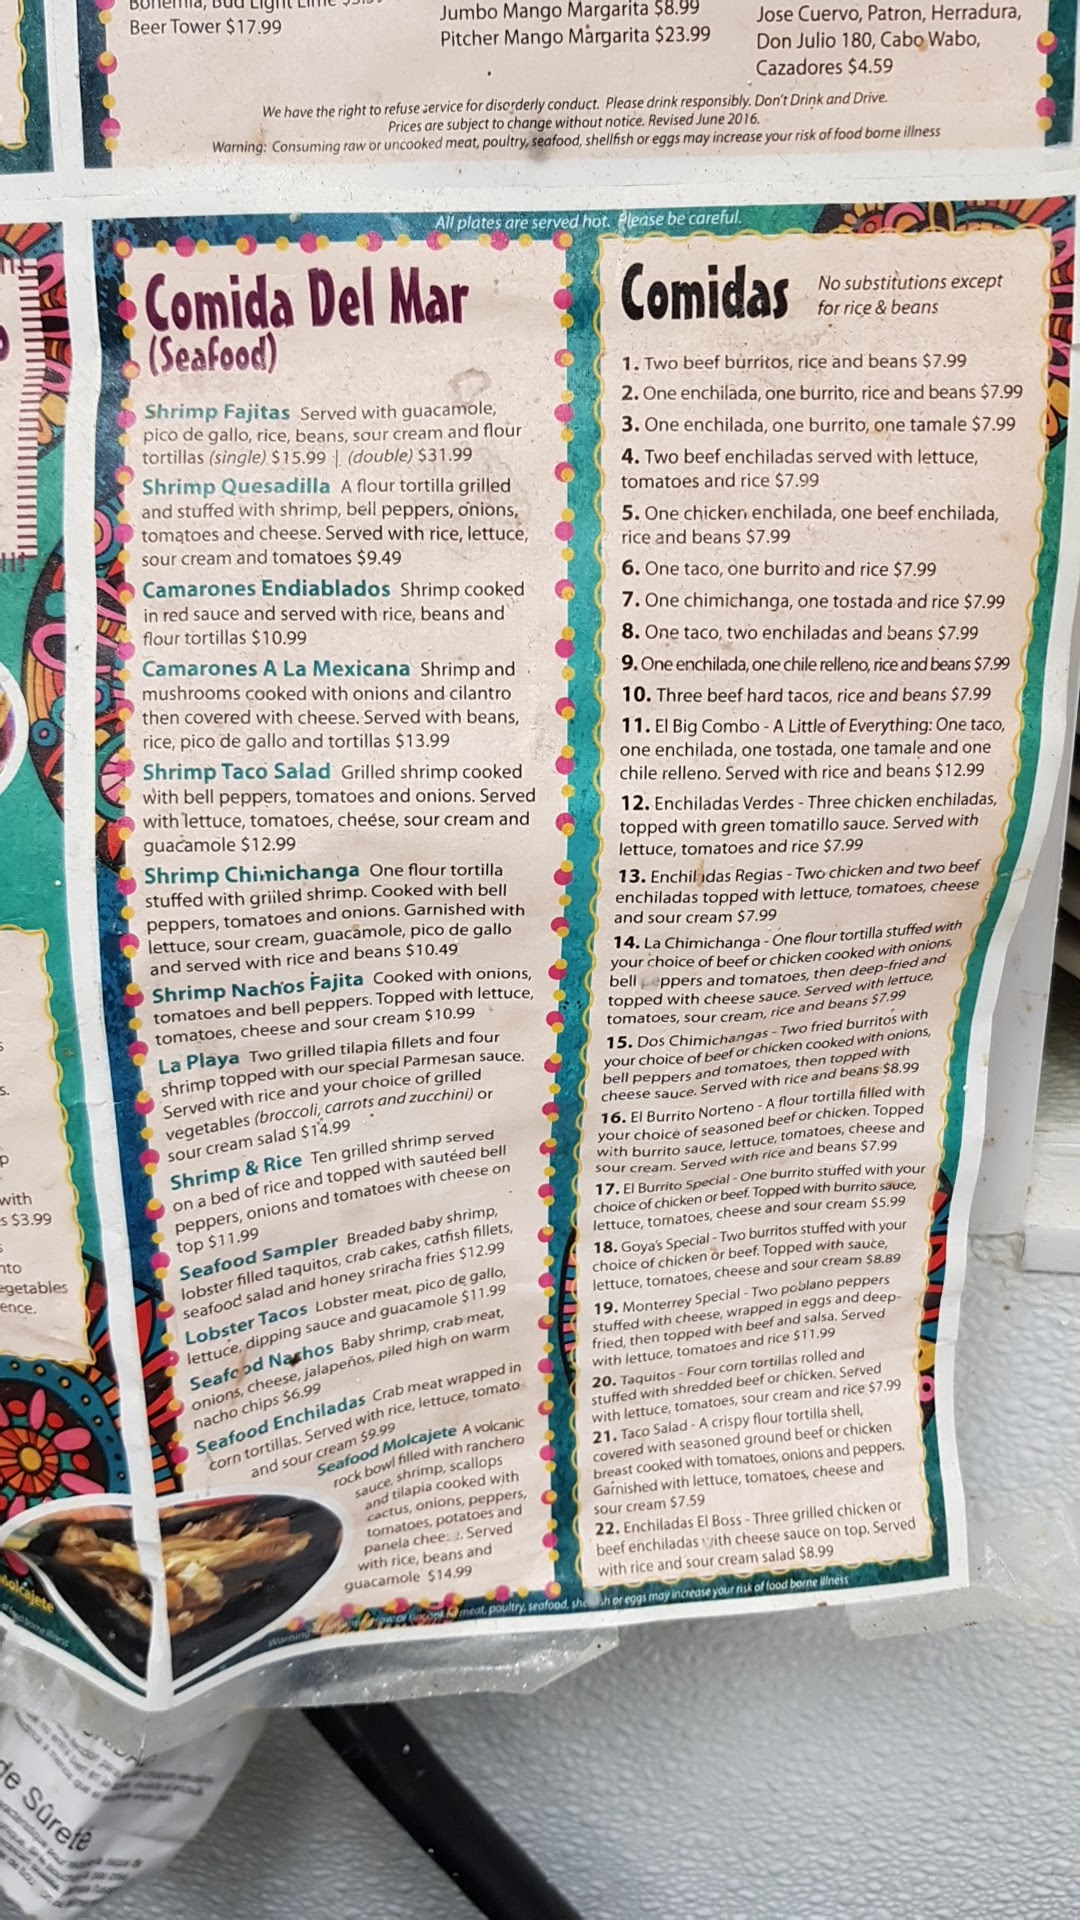 Beer Tower $17.99
Jumbo Mango Margarita $8.99
Pitcher Mango Margarita $23.99
Jose Cuervo, Patron, Herradura,
Don Julio 180, Cabo Wabo,
Cazadores $4.59
We have the right to refuse service for disorderly conduct. Please drink responsibly. Don't Drink and Drive.
Prices are subject to change without notice. Revised June 2016.
Warning: Consuming raw or uncooked meat, poultry, seafood, shellfish or eggs may increase your risk of food borne illness
All plates are served hot. Please be careful.
Comida Del Mar
(Seafood)
Shrimp Fajitas Served with guacamole,
pico de gallo, rice, beans, sour cream and flour
tortillas (single) $15.99 | (double) $31.99
Shrimp Quesadilla A flour tortilla grilled
and stuffed with shrimp, bell peppers, onions,
tomatoes and cheese. Served with rice, lettuce,
sour cream and tomatoes $9.49
Camarones Endiablados Shrimp cooked
in red sauce and served with rice, beans and
flour tortillas $10.99
Camarones A La Mexicana Shrimp and
mushrooms cooked with onions and cilantro
then covered with cheese. Served with beans,
rice, pico de gallo and tortillas $13.99
Shrimp Taco Salad Grilled shrimp cooked
with bell peppers, tomatoes and onions. Served
with lettuce, tomatoes, cheese, sour cream and
guacamole $12.99
Shrimp Chimichanga One flour tortilla
stuffed with grilled shrimp. Cooked with bell
peppers, tomatoes and onions. Garnished with
lettuce, sour cream, guacamole, pico de gallo
and served with rice and beans $10.49
Shrimp Nachos Fajita Cooked with onions,
tomatoes and bell peppers. Topped with lettuce,
tomatoes, cheese and sour cream $10.99
La Playa Two grilled tilapia fillets and four
shrimp topped with our special Parmesan sauce.
Served with rice and your choice of grilled
vegetables (broccoli, carrots and zucchini) or
sour cream salad $14.99
Shrimp & Rice Ten grilled shrimp served
on a bed of rice and topped with sautéed bell
peppers, onions and tomatoes with cheese on
top $11.99
Seafood Sampler Breaded baby shrimp,
lobster filled taquitos, crab cakes, catfish fillets,
seafood salad and honey sriracha fries $12.99
Lobster Tacos Lobster meat, pico de gallo,
lettuce, dipping sauce and guacamole $11.99
Seafood Nachos Baby shrimp, crab meat,
onions, cheese, jalapeños, piled high on warm
nacho chips $6.99
Seafood Enchiladas Crab meat wrapped in
corn tortillas. Served with rice, lettuce, tomato
and sour cream $9.99
Seafood Molcajete A volcanic
rock bowl filled with ranchero
sauce, shrimp, scallops
and tilapia cooked with
cactus, onions, peppers,
tomatoes, potatoes and
panela Served
with rice, beans and
guacamole $14.99
Comidas
No substitutions except
for rice & beans
1. Two beef burritos, rice and beans $7.99
2. One enchilada, one burrito, rice and beans $7.99
3. One enchilada, one burrito, one tamale $7.99
4. Two beef enchiladas served with lettuce,
tomatoes and rice $7.99
5. One chicken enchilada, one beef enchilada,
rice and beans $7.99
6. One taco, one burrito and rice $7.99
7. One chimichanga, one tostada and rice $7.99
8. One taco, two enchiladas and beans $7.99
9. One enchilada, one chile relleno, rice and beans $7.99
10. Three beef hard tacos, rice and beans $7.99
11. El Big Combo - A Little of Everything: One taco,
one enchilada, one tostada, one tamale and one
chile relleno. Served with rice and beans $12.99
12. Enchiladas Verdes - Three chicken enchiladas,
topped with green tomatillo sauce. Served with
lettuce, tomatoes and rice $7.99
13. Enchiladas Regias - Two chicken and two beef
enchiladas topped with lettuce, tomatoes, cheese
and sour cream $7.99
14. La Chimichanga - One flour tortilla stuffed with
your choice of beef or chicken cooked with onions,
bell peppers and tomatoes, then deep-fried and
topped with cheese sauce. Served with lettuce,
tomatoes, sour cream, rice and beans $7.99
15. Dos Chimichangas - Two fried burritos with
your choice of beef or chicken cooked with onions,
bell peppers and tomatoes, then topped with
cheese sauce. Served with rice and beans $8.99
16. El Burrito Norteno - A flour tortilla filled with
your choice of seasoned beef or chicken. Topped
with burrito sauce, lettuce, tomatoes, cheese and
sour cream. Served with rice and beans $7.99
17. El Burrito Special - One burrito stuffed with your
choice of chicken or beef. Topped with burrito sauce,
lettuce, tomatoes, cheese and sour cream $5.99
18. Goya's Special - Two burritos stuffed with your
choice of chicken or beef. Topped with sauce,
lettuce, tomatoes, cheese and sour cream $8.89
19. Monterrey Special - Two poblano peppers
stuffed with cheese, wrapped in eggs and deep-
fried, then topped with beef and salsa. Served
with lettuce, tomatoes and rice $11.99
20. Taquitos - Four corn tortillas rolled and
stuffed with shredded beef or chicken. Served
with lettuce, tomatoes, sour cream and rice $7.99
21. Taco Salad - A crispy flour tortilla shell,
covered with seasoned ground beef or chicken
breast cooked with tomatoes, onions and peppers.
Garnished with lettuce, tomatoes, cheese and
sour cream $7.59
22. Enchiladas El Boss - Three grilled chicken or
beef enchiladas with cheese sauce on top. Served
with rice and sour cream salad $8.99
Warning meat, poultry, seafood, shellfish or eggs may increase your risk of food borne illness
with
$3.99
vegetables
Molcajete
de Sûreté